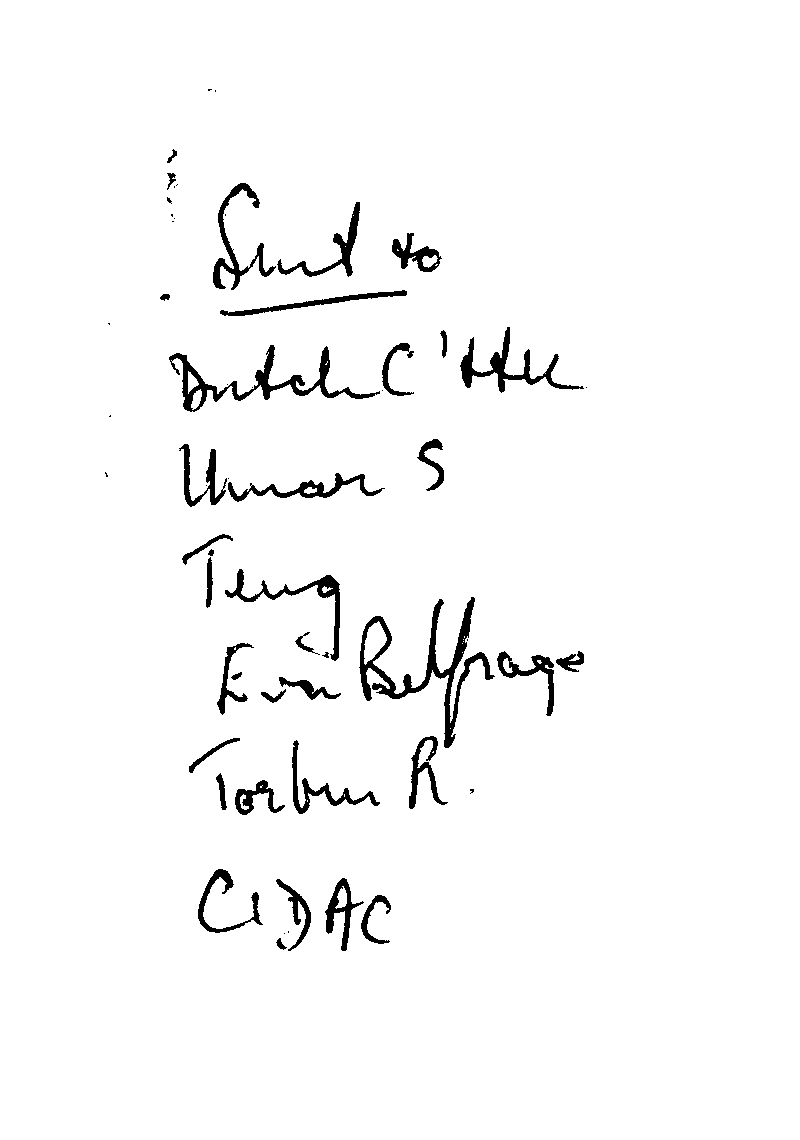 Sent to
Dutch C'ttee
Unnar S
Teng
Eva Belfrage
Torben R.
CIDAC